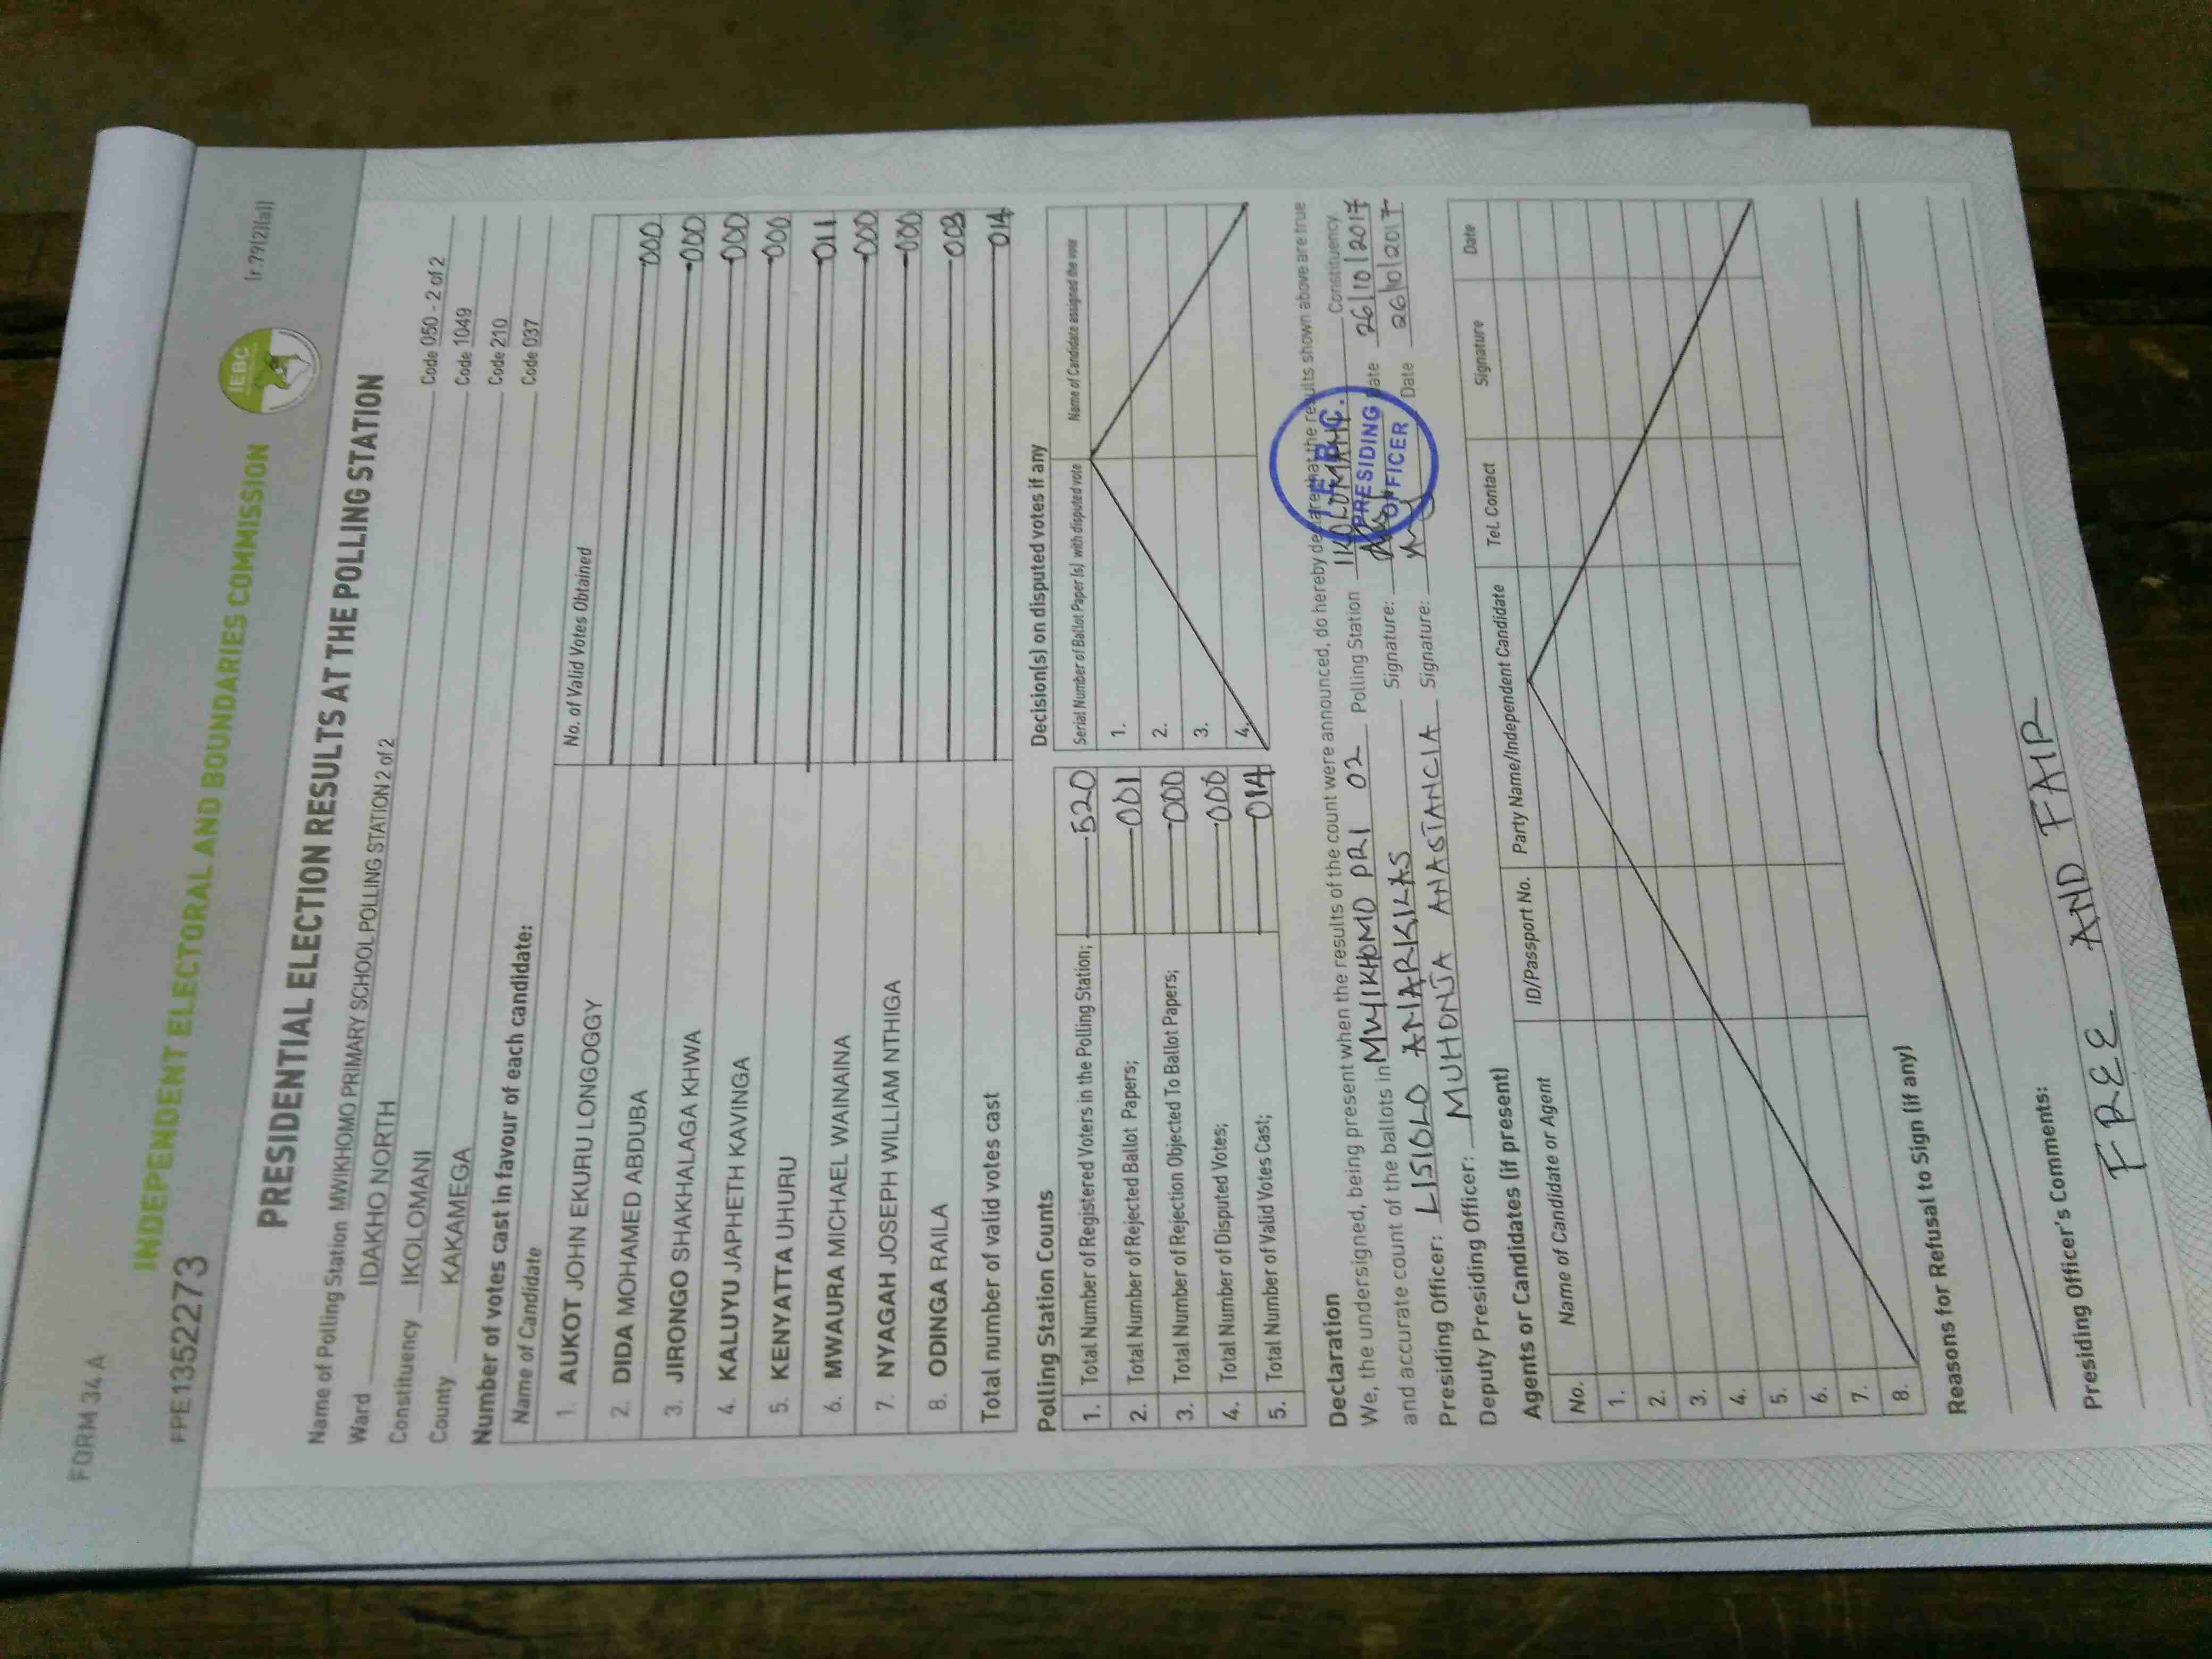 FORM 34A
FPE1352273
INDEPENDENT ELECTORAL AND BOUNDARIES COMMISSION
IEBC
[r.79(2)(a)]
PRESIDENTIAL ELECTION RESULTS AT THE POLLING STATION
Name of Polling Station MWIKHOMO PRIMARY SCHOOL POLLING STATION 2 of 2 Code 050 - 2 of 2
Ward IDAKHO NORTH Code 1049
Constituency IKOLOMANI Code 210
County KAKAMEGA Code 037
Number of votes cast in favour of each candidate:
Name of Candidate No. of Valid Votes Obtained
1. AUKOT JOHN EKURU LONGOGGY 000
2. DIDA MOHAMED ABDUBA 000
3. JIRONGO SHAKHALAGA KHWA 000
4. KALUYU JAPHETH KAVINGA 000
5. KENYATTA UHURU 011
6. MWAURA MICHAEL WAINAINA 000
7. NYAGAH JOSEPH WILLIAM NTHIGA 000
8. ODINGA RAILA 003
Total number of valid votes cast 014
Polling Station Counts
1. Total Number of Registered Voters in the Polling Station; 520
2. Total Number of Rejected Ballot Papers; 001
3. Total Number of Rejection Objected To Ballot Papers; 000
4. Total Number of Disputed Votes; 000
5. Total Number of Valid Votes Cast; 014
Decision(s) on disputed votes if any
Serial Number of Ballot Paper (s) with disputed vote Name of Candidate assigned the vote
1.
2.
3.
4.
Declaration
We, the undersigned, being present when the results of the count were announced, do hereby declare that the results shown above are true
and accurate count of the ballots in MWIKHOMO PRI 02 Polling Station IKOLOMANI Constituency
Presiding Officer: LISIOLO ANARKILAS Signature: Date 26/10/2017
Deputy Presiding Officer: MUHONJA ANASTANCIA Signature: Date 26/10/2017
I.E.B.C.
PRESIDING
OFFICER
Agents or Candidates (if present)
No. Name of Candidate or Agent ID/Passport No. Party Name/Independent Candidate Tel. Contact Signature Date
1.
2.
3.
4.
5.
6.
7.
8.
Reasons for Refusal to Sign (if any)
Presiding Officer's Comments:
FREE AND FAIR